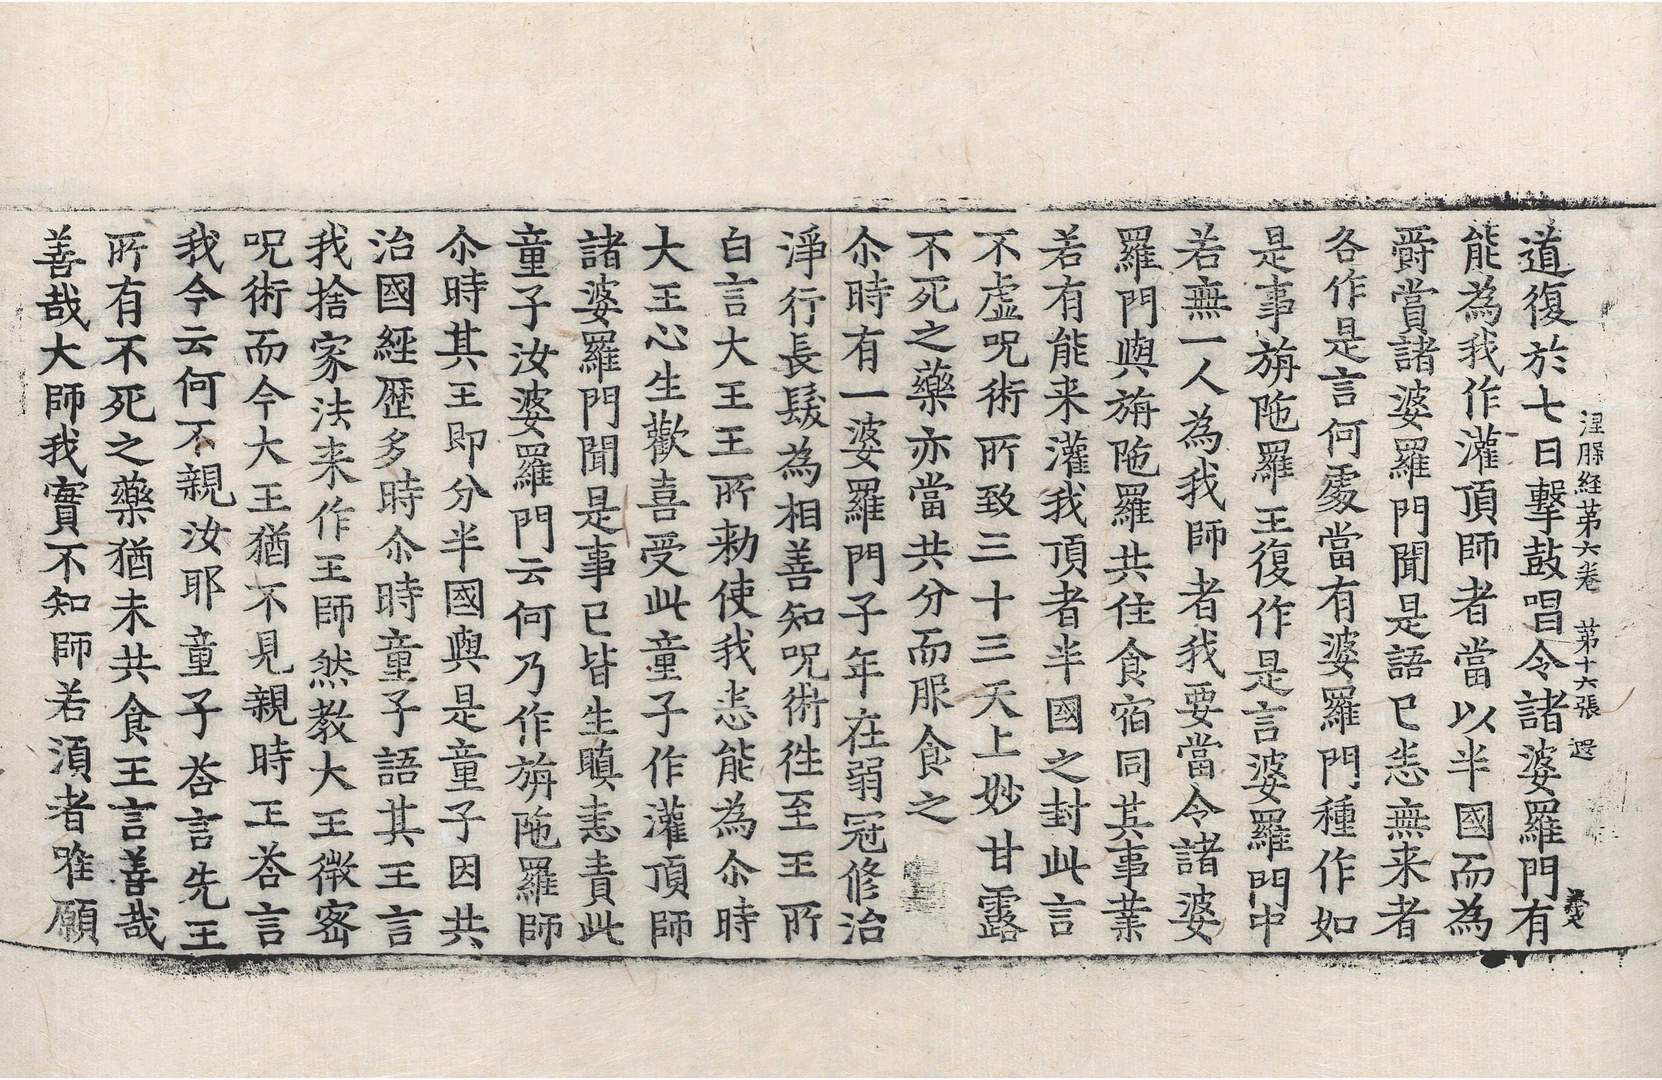 涅槃経苐六卷　苐十六張　遐
道復於七日擊鼓唱令諸婆羅門有
能為我作灌頂師者當以半國而為
爵賞諸婆羅門聞是語已恚無来者
各作是言何處當有婆羅門種作如
是事旃陁羅王復作是言婆羅門中
若無一人為我師者我要當令諸婆
羅門與旃陁羅共住食宿同其事業
若有能来灌我頂者半國之封此言
不虛呪術所致三十三天上妙甘露
不死之藥亦當共分而服食之
尒時有一婆羅門子年在弱冠修治
淨行長髮為相善知呪術徃至王所
白言大王王所勑使我悉能為尒時
大王心生歡喜受此童子作灌頂師
諸婆羅門聞是事已皆生瞋恚責此
童子汝婆羅門云何乃作旃陁羅師
尒時其王即分半國與是童子因共
治國經歷多時尒時童子語其王言
我捨家法来作王師然教大王微密
呪術而今大王猶不見親時王荅言
我今云何不親汝耶童子荅言先王
所有不死之藥猶未共食王言善哉
善哉大師我實不知師若湏者唯願